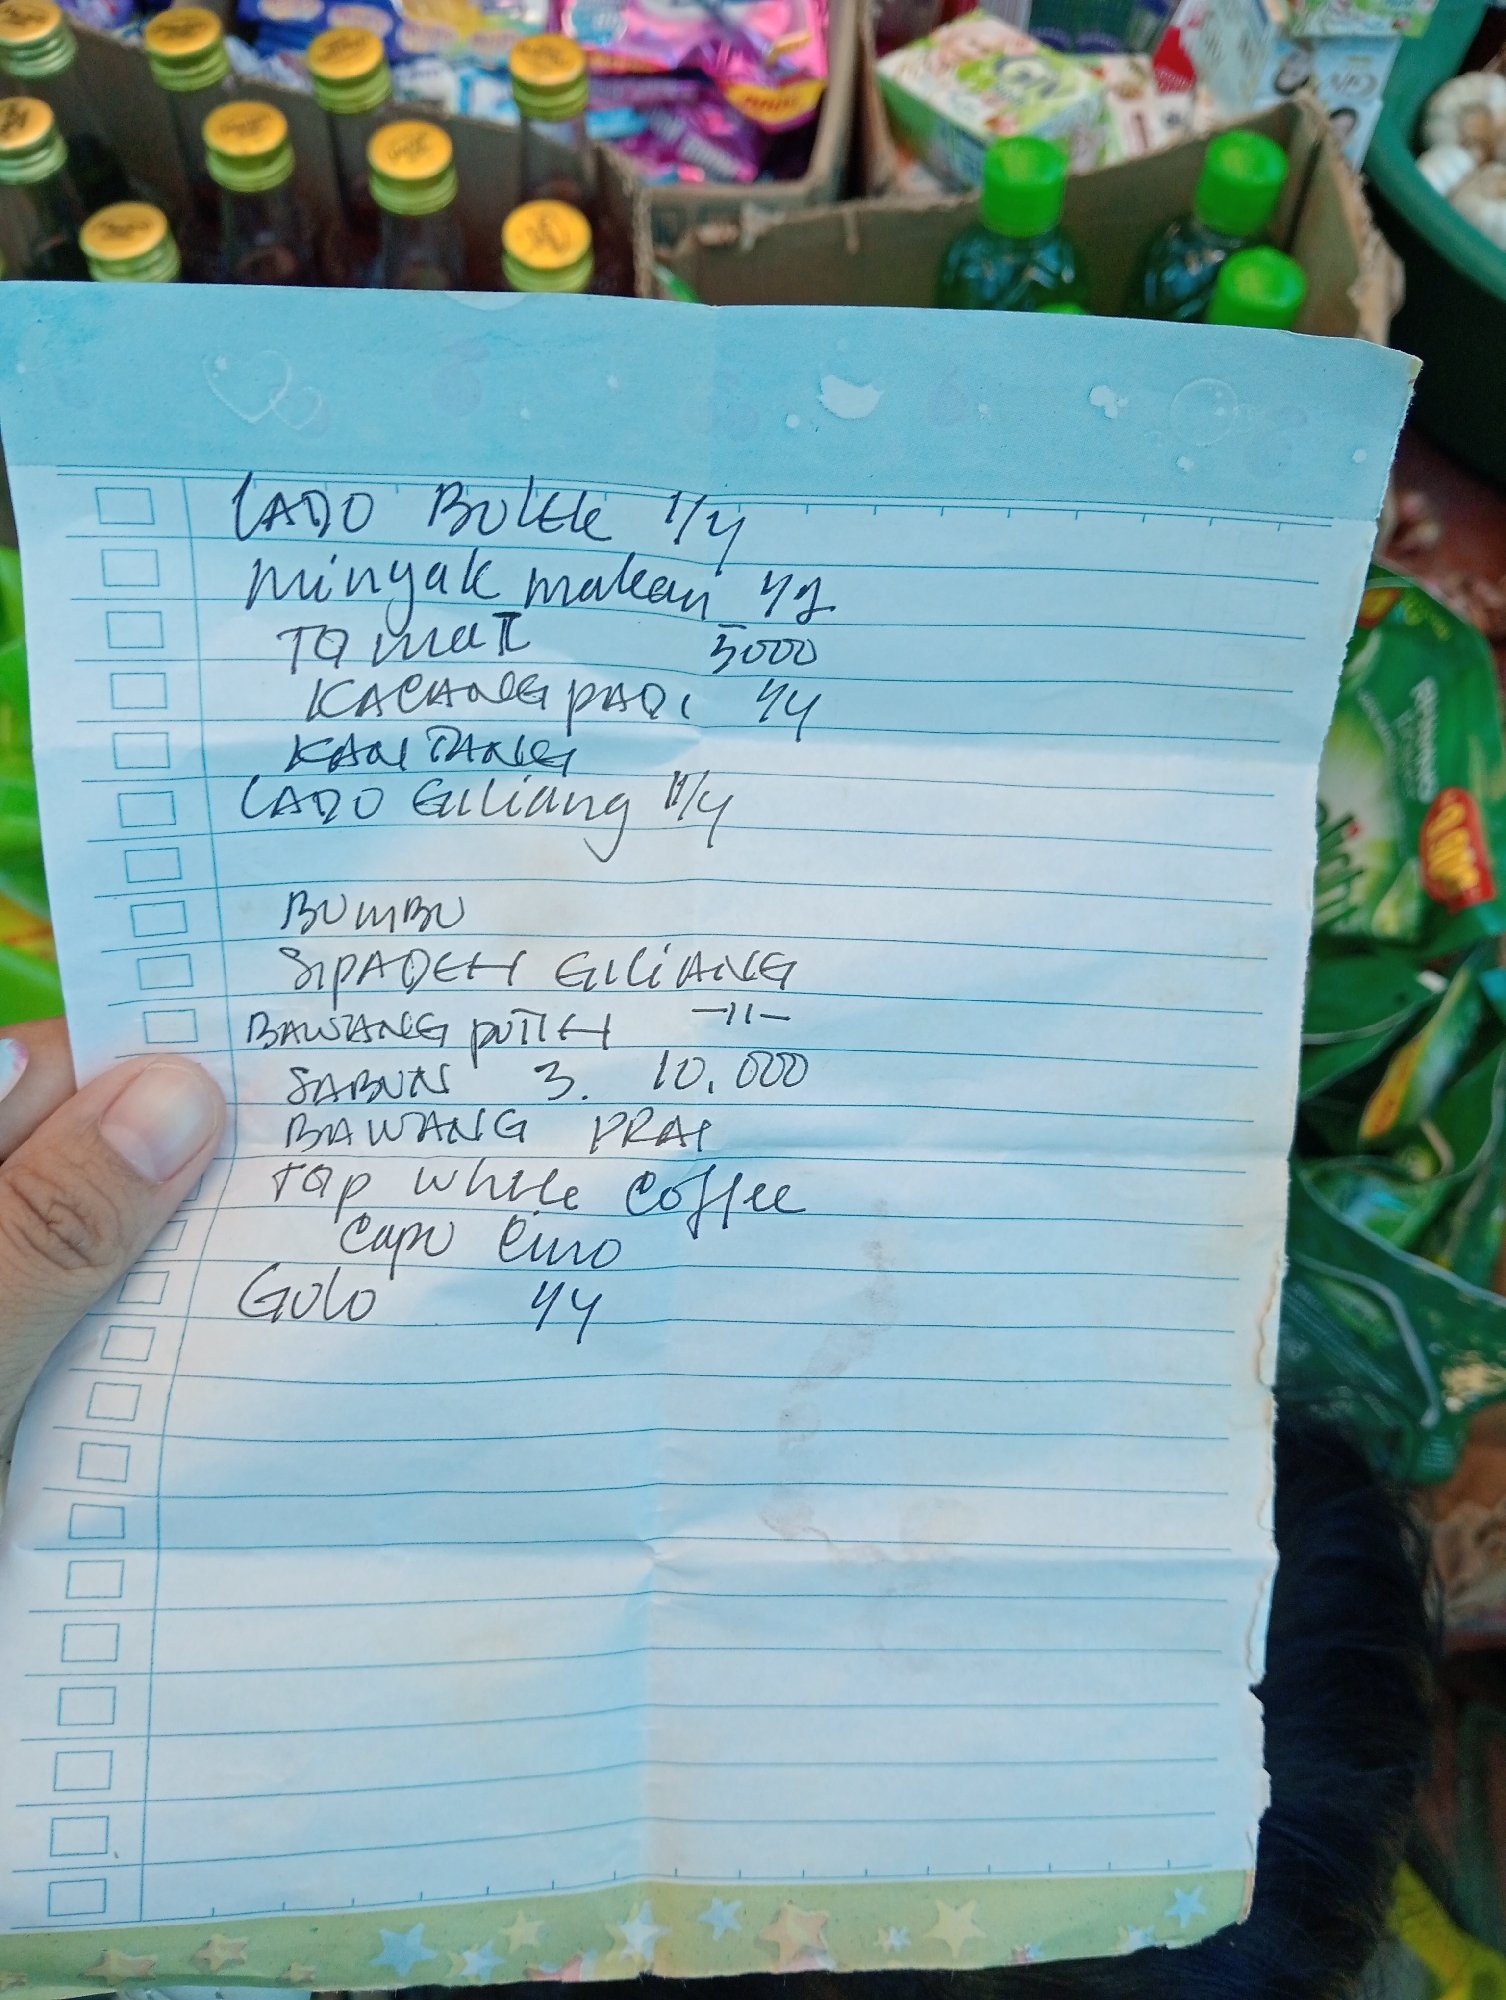 LADO BULEK 1/4
minyak makan 1/2
TOMAT 5000
KACANG PADI 1/4
KANTANG
LADO GILIANG 1/4
BUMBU
SIPADEH GILIANG
BAWANG PUTIH —11—
SABUN 3. 10.000
BAWANG PRAI
TOP White Coffee
Capu Cino
GULO 1/4